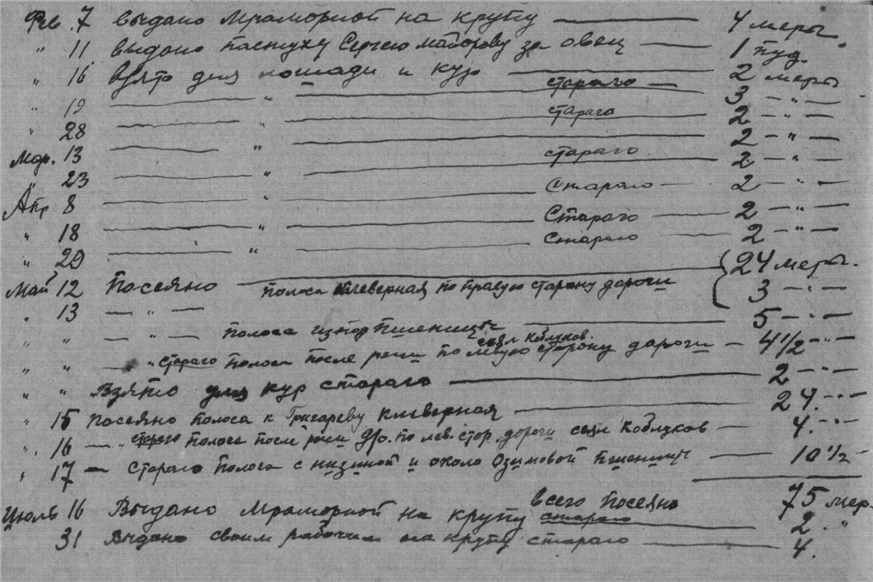 Фев. 7 выдано Мраморной на крупу — 4 меры
" 11 выдано пастуху Сергею Майорову за овец — 1 пуд.
" 16 взято для лошади и кур — 2 меры
" 19 — " — стараго — 3 — " —
" 28 — " — стараго — 2 — " —
Мар. 13 — " — 2 — " —
" 23 — " — стараго — 2 — " —
Апр 8 — " — стараго — 2 — " —
" 18 — " — стараго — 2 — " —
" 29 — " — стараго — 2 — " —
Май 12 посеяно полоса клеверная по правую сторону дороги 24 меры.
" 13 — " — 3 — " —
" " — " — полоса изпод пшеницы — 5 — " —
сеял Коблуков.
" " — " стараго полоса после ржи по левую сторону дороги — 4 1/2 — " —
" " Взято для кур стараго — 2 — " —
" 15 посеяно полоса к Григореву клеверная — 24. — " —
" 16 — " стараго полоса после ржи по лев. стор. дороги сеял Коблуков — 4. — " —
" 17 — стараго полоса с низиной и около Озимовой пшеницы — 10 1/2 —
всего посеяно 75 мер.
Июль 16 Выдано Мраморной на крупу стараго — 2. "
31 Выдано своим рабочим на крупу стараго — 4.